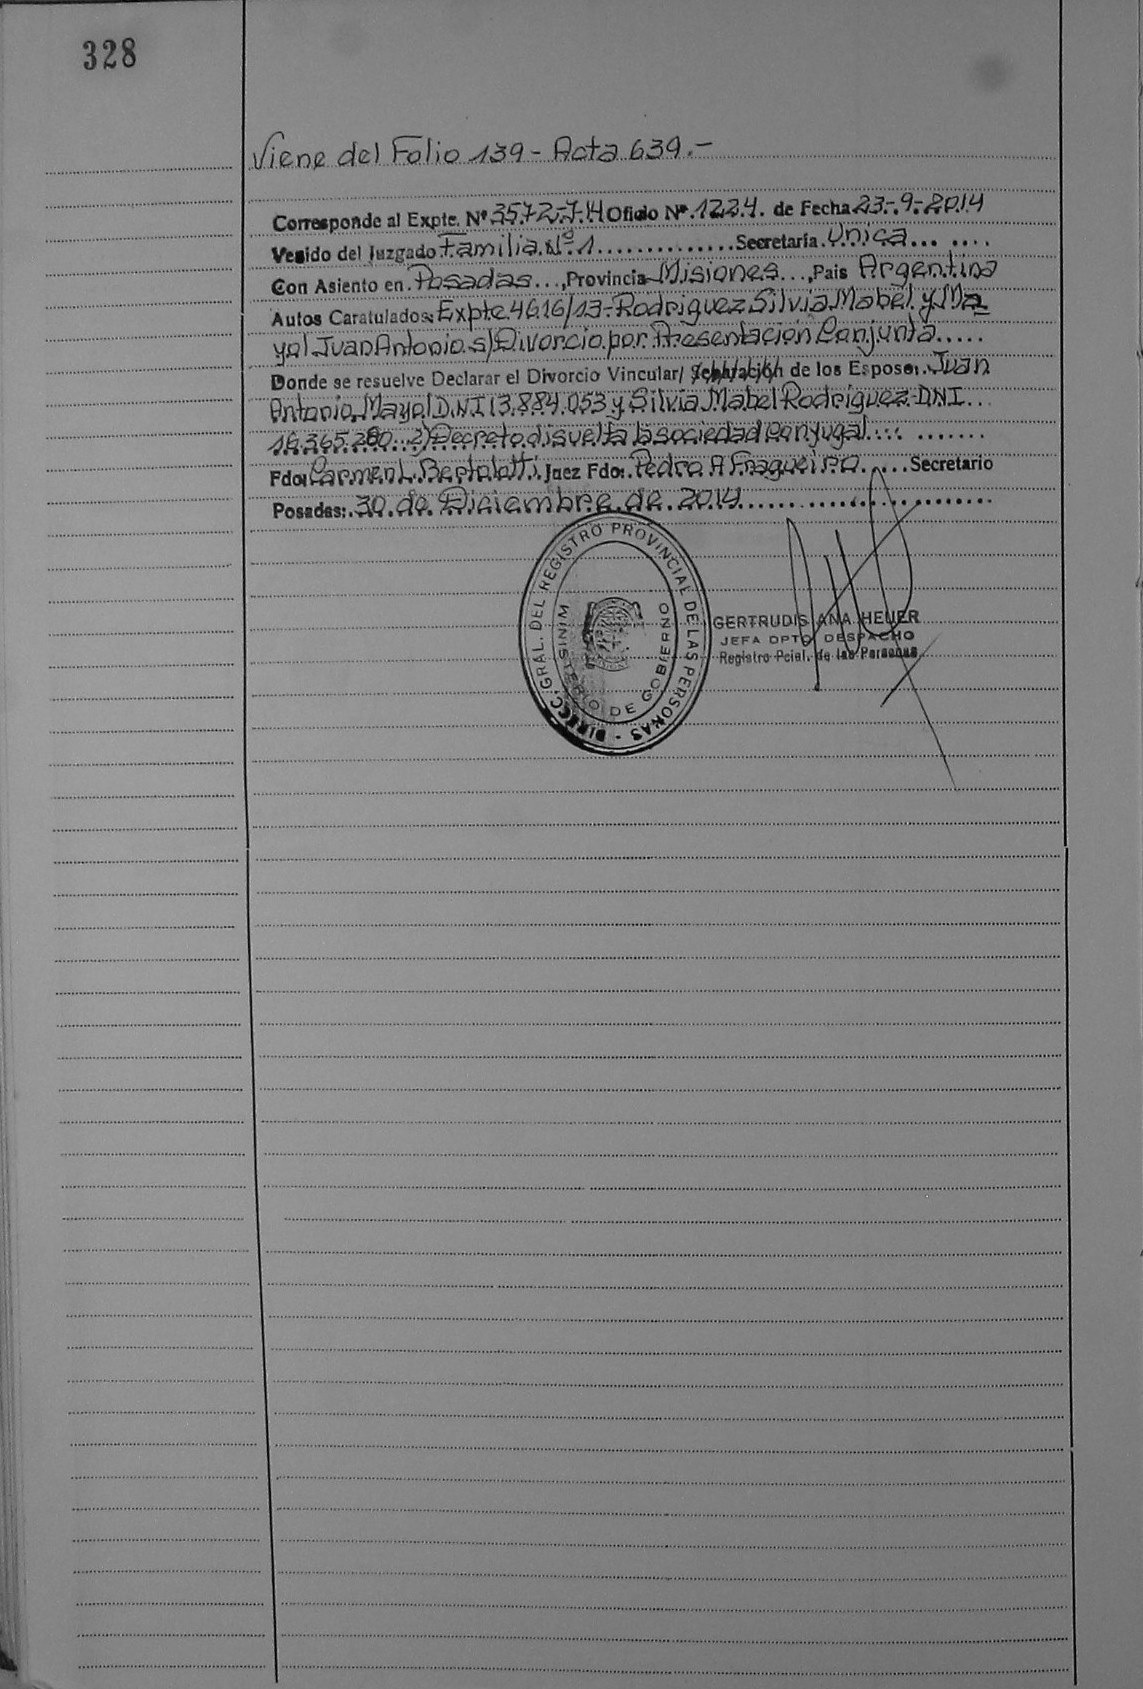 328
Viene del Folio 139 - Acta 639.-
Corresponde al Expte. Nº 3572-J-14 Oficio Nº 1224. de Fecha 23-9-2014
Venido del Juzgado Familia Nº 1 .............. Secretaría Unica... ....
Con Asiento en Posadas..., Provincia Misiones..., Pais Argentina
Autos Caratulados: Expte 4616/13- Rodriguez Silvia Mabel y Ma
yol Juan Antonio s/ Divorcio por Presentacion Conjunta.....
Donde se resuelve Declarar el Divorcio Vincular/ Separación de los Esposos: Juan
Antonio Mayol D.N.I 13.884.053 y Silvia Mabel Rodriguez-DNI...
16.365.280. 2) Decreto disuelta la sociedad conyugal.... .......
Fdo: Carmen L. Bertolotti. Juez Fdo: Pedro A Fragueiro..... Secretario
Posadas: 30 de Diciembre de 2014....................
DIRECC. GRAL. DEL REGISTRO PROVINCIAL DE LAS PERSONAS -
MINISTERIO DE GOBIERNO
GERTRUDIS ANA HEUER
JEFA DPTO DESPACHO
Registro Pcial. de las Personas